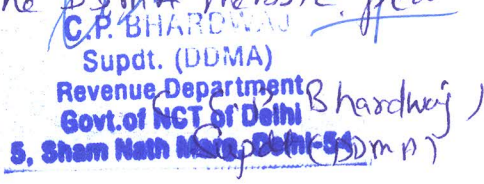 C.P. BHARDWAJ
Supdt. (DDMA)
Revenue Department
Govt. of NCT of Delhi
5, Sham Nath Marg, Delhi-54
Bhardwaj)
Supdt (DDMA)